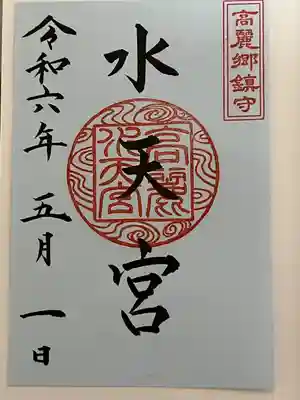 高麗郷鎮守
水天宮
高麗
水天宮
令和六年 五月 一日